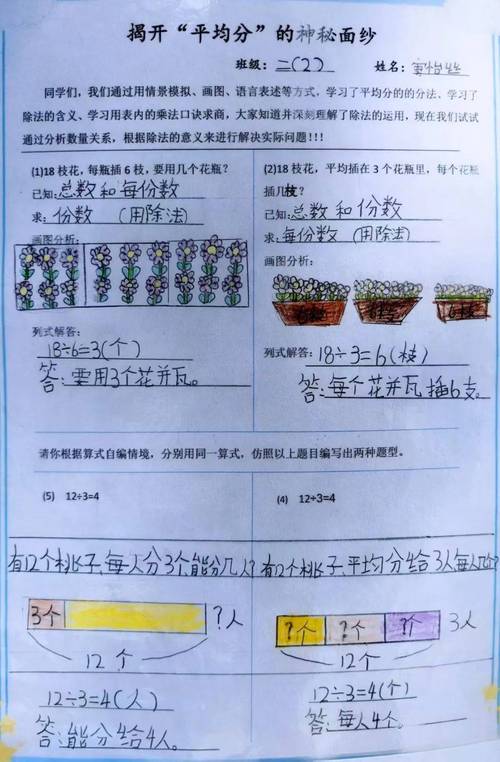 揭开“平均分”的神秘面纱
班级：二(2) 姓名：
同学们，我们通过用情景模拟、画图、语言表述等方式，学习了平均分的的分法、学习了
除法的含义、学习用表内的乘法口诀求商，大家知道并深刻理解了除法的运用，现在我们试试
通过分析数量关系，根据除法的意义来进行解决实际问题！！！
(1)18 枝花，每瓶插 6 枝，要用几个花瓶？
已知：总数和每份数
求：份数 （用除法）
画图分析：
列式解答：
18÷6=3(个)
答：要用3个花并瓦。
(2)18 枝花，平均插在 3 个花瓶里，每个花瓶
插几枝？
已知：总数和份数
求：每份数 （用除法）
画图分析：
6枝 6枝 6枝
列式解答：18÷3=6(枝)
答：每个花并瓦插6支。
请你根据算式自编情境，分别用同一算式，仿照以上题目编写出两种题型。
(5) 12÷3=4
有12个桃子，每人分3个，能分几人？
3个 ？人
12个
12÷3=4(人)
答：能分给4人。
(4) 12÷3=4
有12个桃子，平均分给3人，每人几个？
？个 ？个 ？个 3人
12个
12÷3=4(个)
答：每人4个。